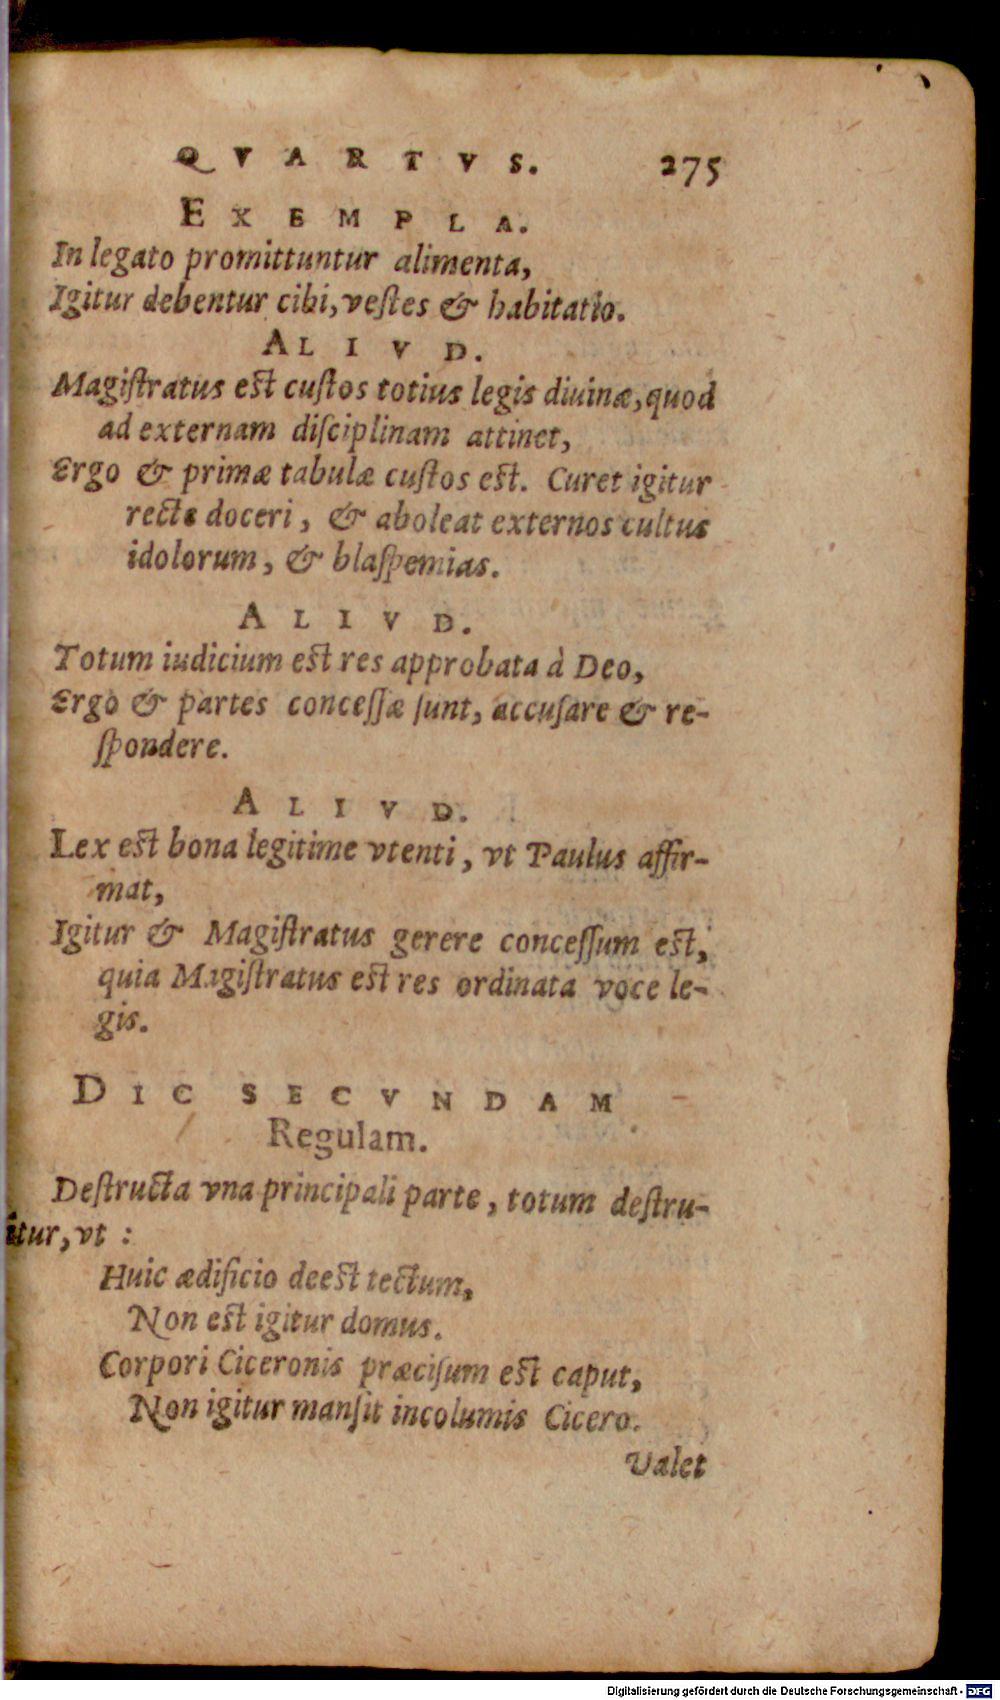 QVARTVS. 275
EXEMPLA.
In legato promittuntur alimenta,
Igitur debentur cibi, veſtes & habitatio.
ALIVD.
Magiſtratus eſt cuſtos totius legis diuinæ, quod
ad externam diſciplinam attinet,
Ergo & primæ tabulæ cuſtos eſt. Curet igitur
recte doceri, & aboleat externos cultus
idolorum, & blaſpemias.
ALIVD.
Totum iudicium eſt res approbata à Deo,
Ergo & partes conceſſæ ſunt, accuſare & re-
ſpondere.
ALIVD.
Lex eſt bona legitime vtenti, vt Paulus affir-
mat,
Igitur & Magiſtratus gerere conceſſum eſt,
quia Magiſtratus eſt res ordinata voce le-
gis.
DIC SECVNDAM
Regulam.
Deſtructa vna principali parte, totum deſtru-
itur, vt :
Huic ædificio deeſt tectum,
Non eſt igitur domus.
Corpori Ciceronis præciſum eſt caput,
Non igitur manſit incolumis Cicero.
Valet
Digitalisierung gefördert durch die Deutsche Forschungsgemeinschaft - DFG